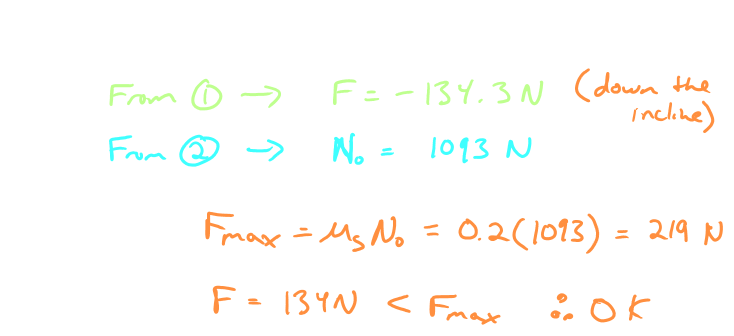 From ① → F = -134.3 N (down the incline)
From ② → N₀ = 1093 N
Fmax = μₛ N₀ = 0.2(1093) = 219 N
F = 134N < Fmax ∴ OK